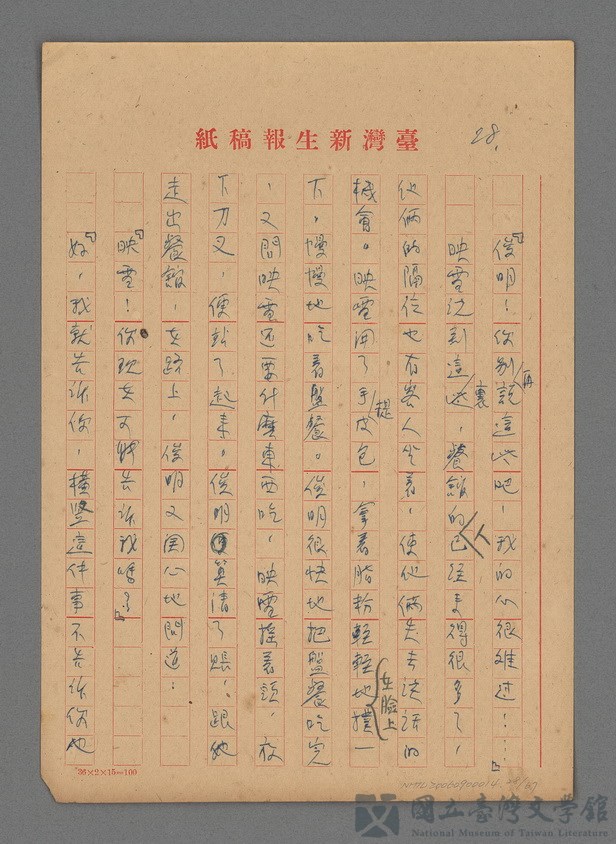 紙稿報生新灣臺
28.
「俊明！你別再說這些吧，我的心很难过！…」
映雪說到這裏，餐館的人已經來得很多了，
他倆的隔位也有客人坐着，使他倆失去談話的
機會。映雪開了手提皮包，拿着脂粉輕輕地在臉上撲一
下，慢慢地吃着盤餐。俊明很快地把盤餐吃完
，又問映雪还要什麼東西吃，映雪搖着頭，放
下刀叉，便站了起來。俊明算清了賬，跟她
走出餐館，在路上，俊明又関心地問道：
「映雪！你現在可以告訴我嗎？」
「好，我就告訴你，橫豎這件事不告訴你也
36×2×15=100
NMTL20060900014 28/67
國立臺灣文學館
National Museum of Taiwan Literature